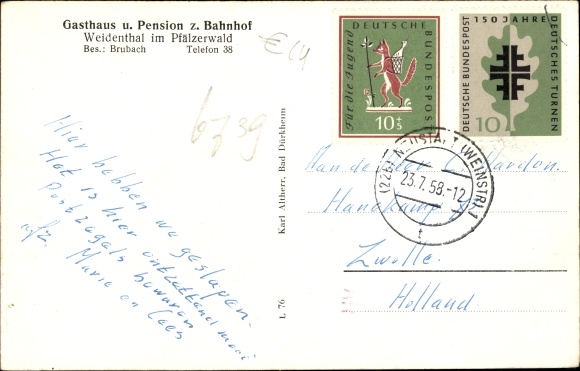 Gasthaus u. Pension z. Bahnhof
Weidenthal im Pfälzerwald
Bes.: Brubach Telefon 38
€ 14
6739
Hier hebben we geslapen.
Het is hier ontzettend mooi
Postzegels bewaren
Marie en Cees
Karl Altherr, Bad Dürkheim
L 76
Für die Jugend
DEUTSCHE BUNDESPOST
10+5
150 JAHRE
DEUTSCHES TURNEN
DEUTSCHE BUNDESPOST
10
(22b) NEUSTADT (WEINSTR) 1
23.7.58.-12
t
Aan de Heer
Zwolle.
Holland.